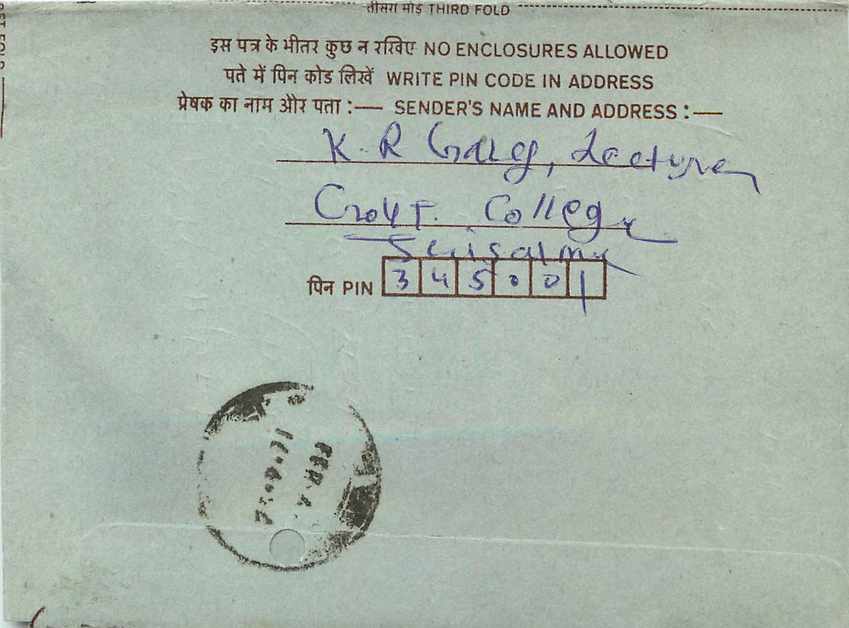 तीसरा मोड़ THIRD FOLD
इस पत्र के भीतर कुछ न रखिए NO ENCLOSURES ALLOWED
पते में पिन कोड लिखें WRITE PIN CODE IN ADDRESS
प्रेषक का नाम और पता :— SENDER'S NAME AND ADDRESS :—
K. R Garg, Lecturer
Govt. College
पिन PIN 345001